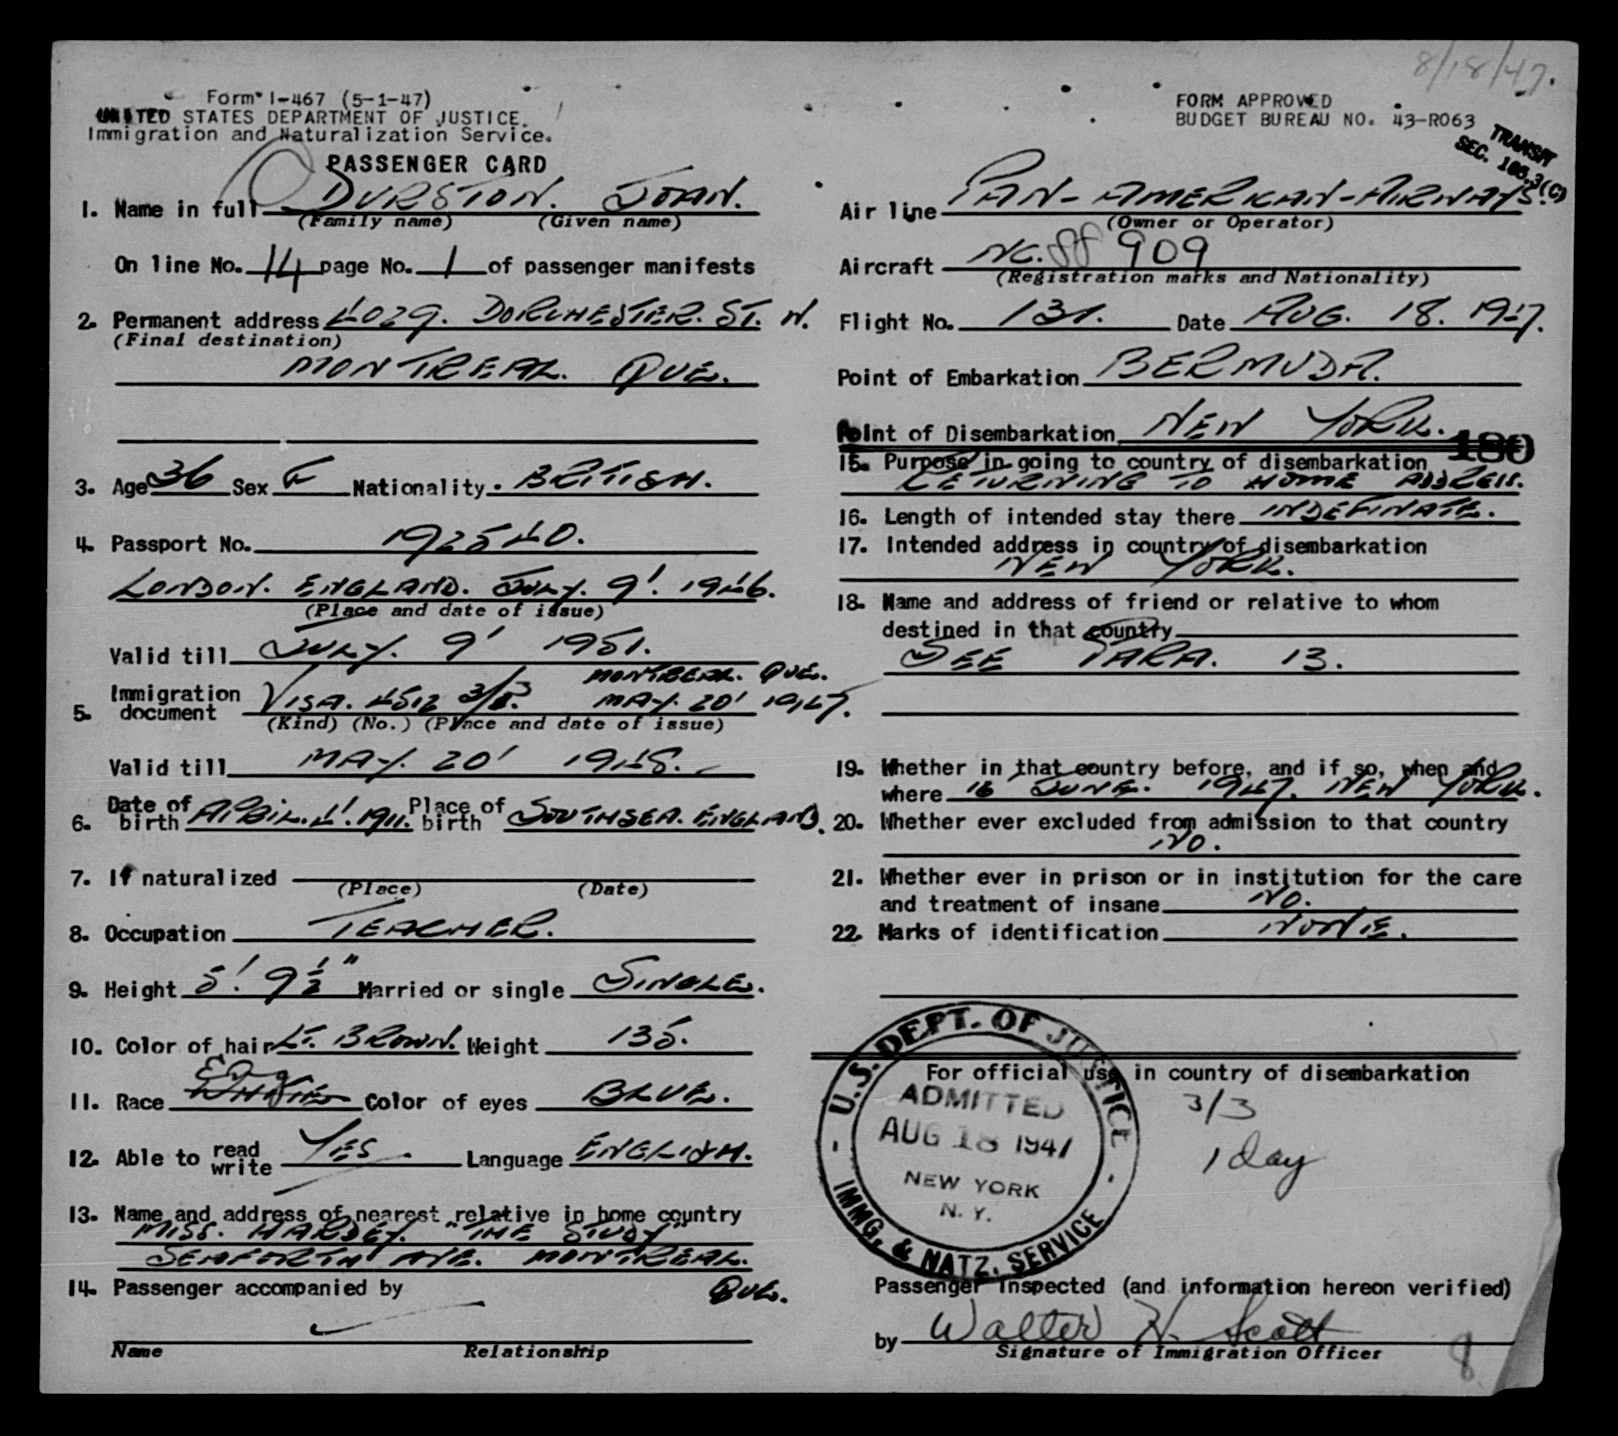 8/18/47.
Form I-467 (5-1-47)
UNITED STATES DEPARTMENT OF JUSTICE.
Immigration and Naturalization Service.
FORM APPROVED
BUDGET BUREAU NO. 43-R063
TRANSIT
SEC.
PASSENGER CARD
1. Name in full DURSTON. JOAN.
(Family name) (Given name)
On line No. 14 page No. 1 of passenger manifests
2. Permanent address 4029. DORCHESTER. ST. W.
(Final destination)
MONTREAL. QUE.
3. Age 36 Sex F Nationality. BRITISH.
4. Passport No. 192540.
LONDON. ENGLAND. JULY. 9' 1946.
(Place and date of issue)
Valid till JULY. 9' 1951.
MONTREAL. QUE.
5. Immigration document VISA. 4512 3/3. MAY. 20' 1947.
(Kind) (No.) (Place and date of issue)
Valid till MAY. 20' 1948.
6. Date of birth APRIL. 4'. 1911. Place of birth SOUTHSEA. ENGLAND.
7. If naturalized
(Place) (Date)
8. Occupation TEACHER.
9. Height 5'. 9½" Married or single SINGLE.
10. Color of hair LT. BROWN. Weight 135.
Eng
11. Race WHITE Color of eyes BLUE.
12. Able to read write YES. Language ENGLISH.
13. Name and address of nearest relative in home country
MISS. HARVEY. "THE STUDY"
SEAFORTH AVE. MONTREAL.
QUE.
14. Passenger accompanied by
Name Relationship
Air line PAN-AMERICAN-AIRWAYS.
(Owner or Operator)
Aircraft NC. 88 909
(Registration marks and Nationality)
Flight No. 131. Date AUG. 18. 1947.
Point of Embarkation BERMUDA.
Point of Disembarkation NEW YORK.
180
15. Purpose in going to country of disembarkation
RETURNING TO HOME ADDRESS.
16. Length of intended stay there INDEFINATE.
17. Intended address in country of disembarkation
NEW YORK.
18. Name and address of friend or relative to whom
destined in that country
SEE PARA. 13.
19. Whether in that country before, and if so, when and
where 16 JUNE. 1947. NEW YORK.
20. Whether ever excluded from admission to that country
NO.
21. Whether ever in prison or in institution for the care
and treatment of insane NO.
22. Marks of identification NONE.
For official use in country of disembarkation
3/3
1 day
U.S. DEPT. OF JUSTICE
ADMITTED
AUG 18 1947
NEW YORK
N. Y.
IMMG. & NATZ. SERVICE
Passenger Inspected (and information hereon verified)
by Walter H. Scott
Signature of Immigration Officer
8